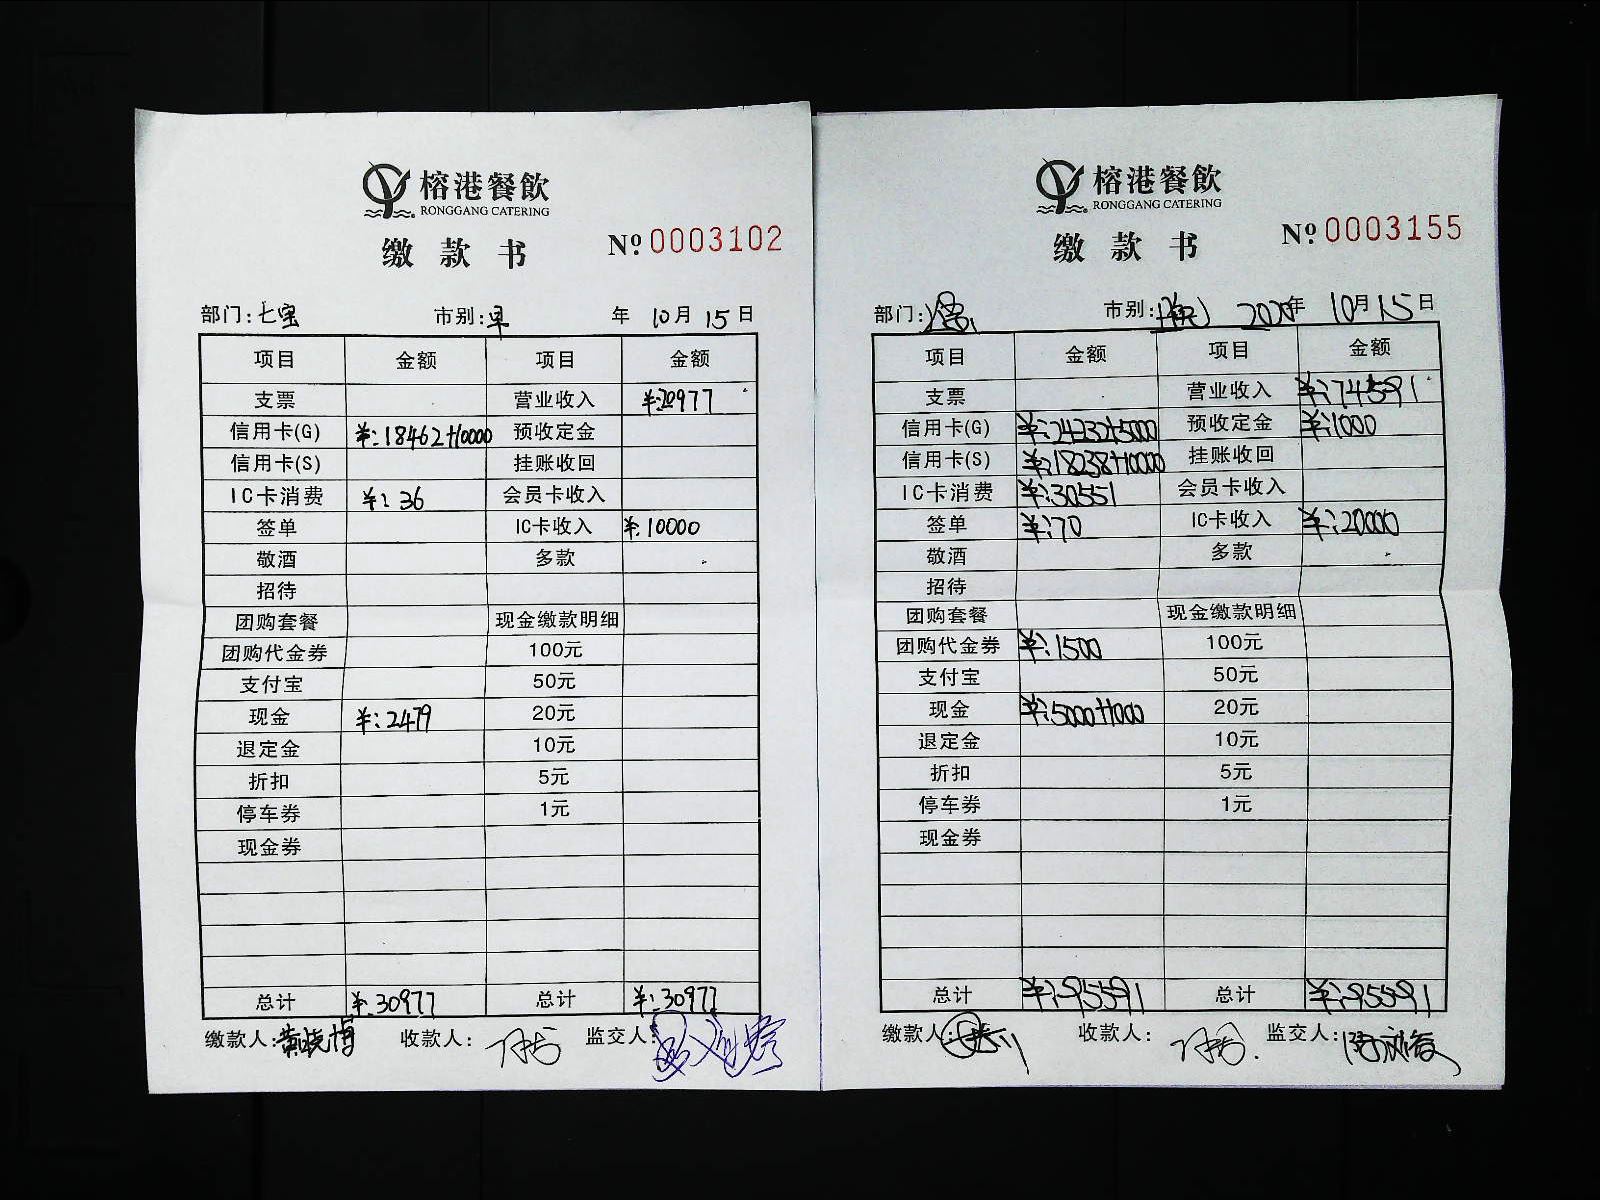 榕港餐飲
RONGGANG CATERING
缴款书 № 0003102
部门:七宝 市别:早 年 10月15日
项目 金额 项目 金额
支票 营业收入 ¥:20977
信用卡(G) ¥:18462+10000 预收定金
信用卡(S) 挂账收回
IC卡消费 ¥:36 会员卡收入
签单 IC卡收入 ¥:10000
敬酒 多款
招待
团购套餐 现金缴款明细
团购代金券 100元
支付宝 50元
现金 ¥:2479 20元
退定金 10元
折扣 5元
停车券 1元
现金券
总计 ¥:30977 总计 ¥:30977
缴款人: 收款人: 监交人:
榕港餐飲
RONGGANG CATERING
缴款书 № 0003155
部门: 市别: 2020年 10月15日
项目 金额 项目 金额
支票 营业收入 ¥:74591
信用卡(G) ¥:24232+5000 预收定金 ¥:1000
信用卡(S) ¥:18238+10000 挂账收回
IC卡消费 ¥:30551 会员卡收入
签单 ¥:70 IC卡收入 ¥:20000
敬酒 多款
招待
团购套餐 现金缴款明细
团购代金券 ¥:1500 100元
支付宝 50元
现金 ¥:5000+1000 20元
退定金 10元
折扣 5元
停车券 1元
现金券
总计 ¥:95591 总计 ¥:95591
缴款人: 收款人: 监交人: